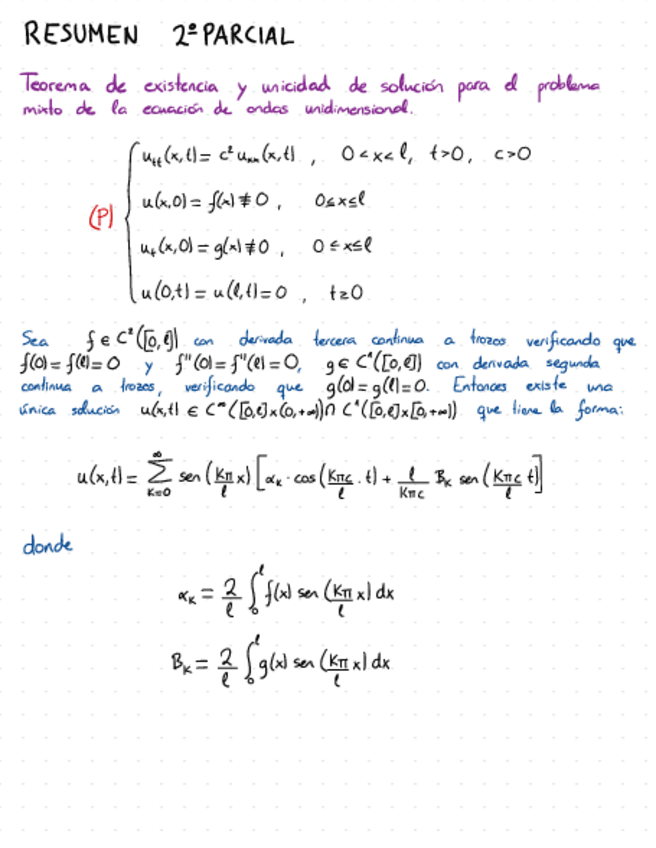 RESUMEN 2º PARCIAL
Teorema de existencia y unicidad de solución para el problema
mixto de la ecuación de ondas unidimensional.
u_tt(x,t) = c² u_xx(x,t) , 0 < x < l, t>0, c>0
(P) u(x,0) = f(x) ≢ 0 , 0≤x≤l
u_t(x,0) = g(x) ≢ 0 , 0≤x≤l
u(0,t) = u(l,t) = 0 , t≥0
Sea f ∈ C²([0,l]) con derivada tercera continua a trozos verificando que
f(0) = f(l) = 0 y f''(0) = f''(l) = 0, g ∈ C¹([0,l]) con derivada segunda
continua a trozos, verificando que g(0) = g(l) = 0. Entonces existe una
única solución u(x,t) ∈ C^∞([0,l]×(0,+∞)) ∩ C¹([0,l]×[0,+∞)) que tiene la forma:
u(x,t) = ∑_{K=0}^{∞} sen (Kπ/l x) [α_K · cos (Kπc/l · t) + l/(Kπc) B_K sen (Kπc/l t)]
donde
α_K = 2/l ∫_0^l f(x) sen (Kπ/l x) dx
B_K = 2/l ∫_0^l g(x) sen (Kπ/l x) dx